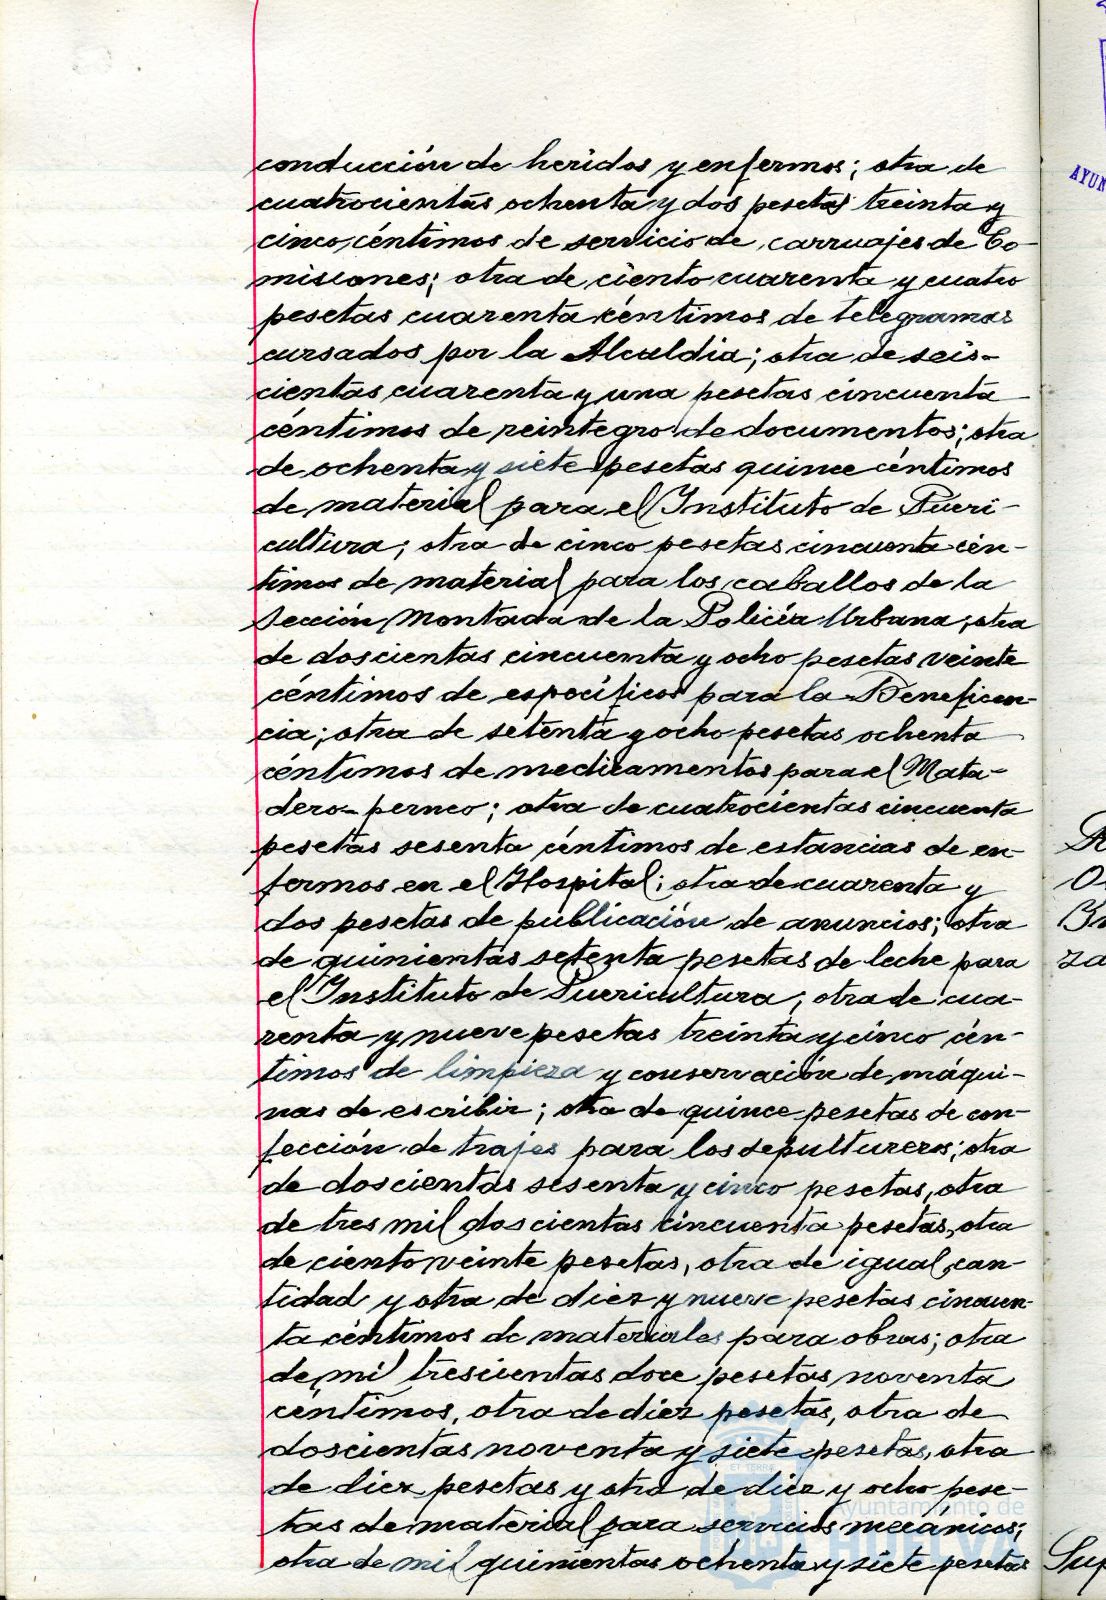 conducción de heridos y enfermos; otra de
cuatrocientas ochenta y dos pesetas treinta y
cinco céntimos de servicio de carruajes de Co-
misiones; otra de ciento cuarenta y cuatro
pesetas cuarenta céntimos de telegramas
cursados por la Alcaldia; otra de seis-
cientas cuarenta y una pesetas cincuenta
céntimos de reintegro de documentos; otra
de ochenta y siete pesetas quince céntimos
de material para el Instituto de Pueri-
cultura; otra de cinco pesetas cincuenta cén-
timos de material para los caballos de la
Sección Montada de la Policía Urbana; otra
de doscientas cincuenta y ocho pesetas veinte
céntimos de específicos para la Beneficen-
cia; otra de setenta y ocho pesetas ochenta
céntimos de medicamentos para el Mata-
dero perneo; otra de cuatrocientas cincuenta
pesetas sesenta céntimos de estancias de en-
fermos en el Hospital; otra de cuarenta y
dos pesetas de publicación de anuncios; otra
de quinientas setenta pesetas de leche para
el Instituto de Puericultura; otra de cua-
renta y nueve pesetas treinta y cinco cén-
timos de limpieza y conservación de máqui-
nas de escribir; otra de quince pesetas de con-
fección de trajes para los sepultureros; otra
de doscientas sesenta y cinco pesetas, otra
de tres mil doscientas cincuenta pesetas, otra
de ciento veinte pesetas, otra de igual can-
tidad y otra de diez y nueve pesetas cincuen-
ta céntimos de materiales para obras; otra
de mil trescientas doce pesetas noventa
céntimos, otra de diez pesetas, otra de
doscientas noventa y siete pesetas, otra
de diez pesetas y otra de diez y ocho pese-
tas de material para servicios mecánicos;
otra de mil quinientas ochenta y siete pesetas
Ayuntamiento de
HUELVA
AYUN
O
za
Sup